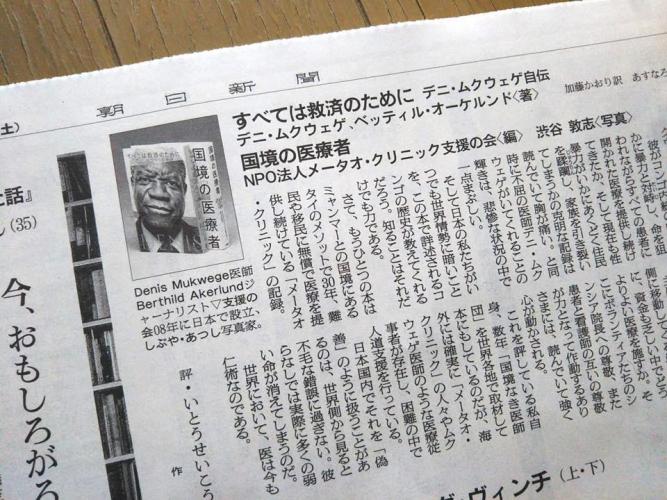 朝日新聞
土)
すべては救済のために デニ・ムクウェゲ自伝
デニ・ムクウェゲ、ベッティル・オーケルンド〈著〉
加藤かおり訳 あすなろ
国境の医療者
NPO法人メータオ・クリニック支援の会〈編〉 渋谷 敦志〈写真〉
国境の医療者
Denis Mukwege医師
Berthild Akerlundジ
ャーナリスト▽支援の
会08年に日本で設立、
しぶや・あつし写真家。
に暴力と対峙し、命を狙
われながらすべての患者に
開かれた医療を提供し続け
てきたか、そして現在も性
暴力がいかにあとく住民
を蹂躙し、家族を引き裂い
てしまうかの克明な記録は
読んでいて胸が痛い。と同
時に不屈の医師デニ・ムク
ウェゲがいてくれることの
輝きは、悲惨な状況の中で
一点まぶしい。
そして日本の私たちがい
つでも世界情勢に暗いこと
を、この本で詳述されるコ
ンゴの歴史が教えてくれる
だろう。知ることはそれだ
けでも力である。
さて、もうひとつの本は
ミャンマーとの国境にある
タイのメソットで30年、難
民や移民に無償で医療を提
供し続けている「メータオ
・クリニック」の記録。
側に移動
資金も乏しい中で
よりよい医療を施すか。そ
こでボランティアたちのシ
ンシア院長への尊敬、また
患者と看護師の互いの尊敬
が力となって作動するあり
さまには、読んでいて強く
心が動かされる。
これを評している私自
身、数年「国境なき医師
団」を世界各地で取材して
本にもしているのだが、海
外には確実に「メータオ・
クリニック」の人々やムク
ウェゲ医師のような医療従
事者が存在し、困難の中で
人道支援を行っている。
日本国内でそれを「偽
善」のように扱うことがあ
るのは、世界側から見ると
不毛な錯誤に過ぎない。彼
らなしでは実際に多くの弱
い命が消えてしまうのだ。
世界において、医は今も
仁術なのである。
評・いとうせいこう
作
話』
(35)
今、おもしろがろ
ヴィンチ(上・下)